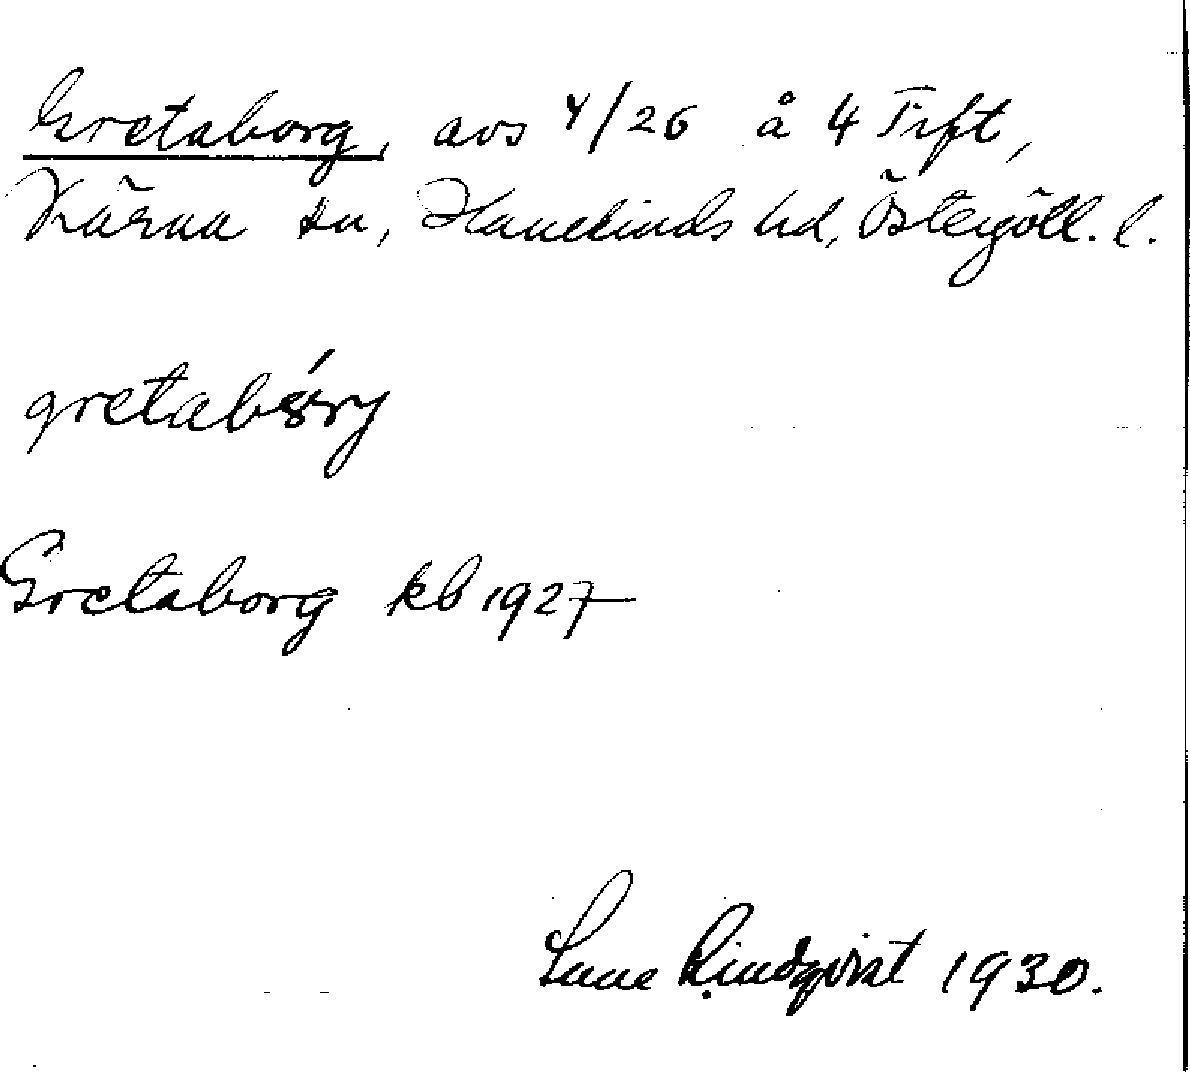 Gretaborg, avs 4/26 å 4 Tift,
Kärna sn, Hanekinds hd, Östergötl. l.
gretabórj
Gretaborg kb 1927
Sune Lindqvist 1930.